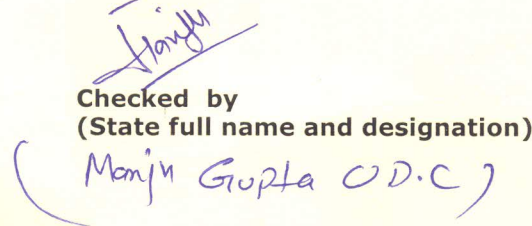 Manju
Checked by
(State full name and designation)
(Manju Gupta UD.C)